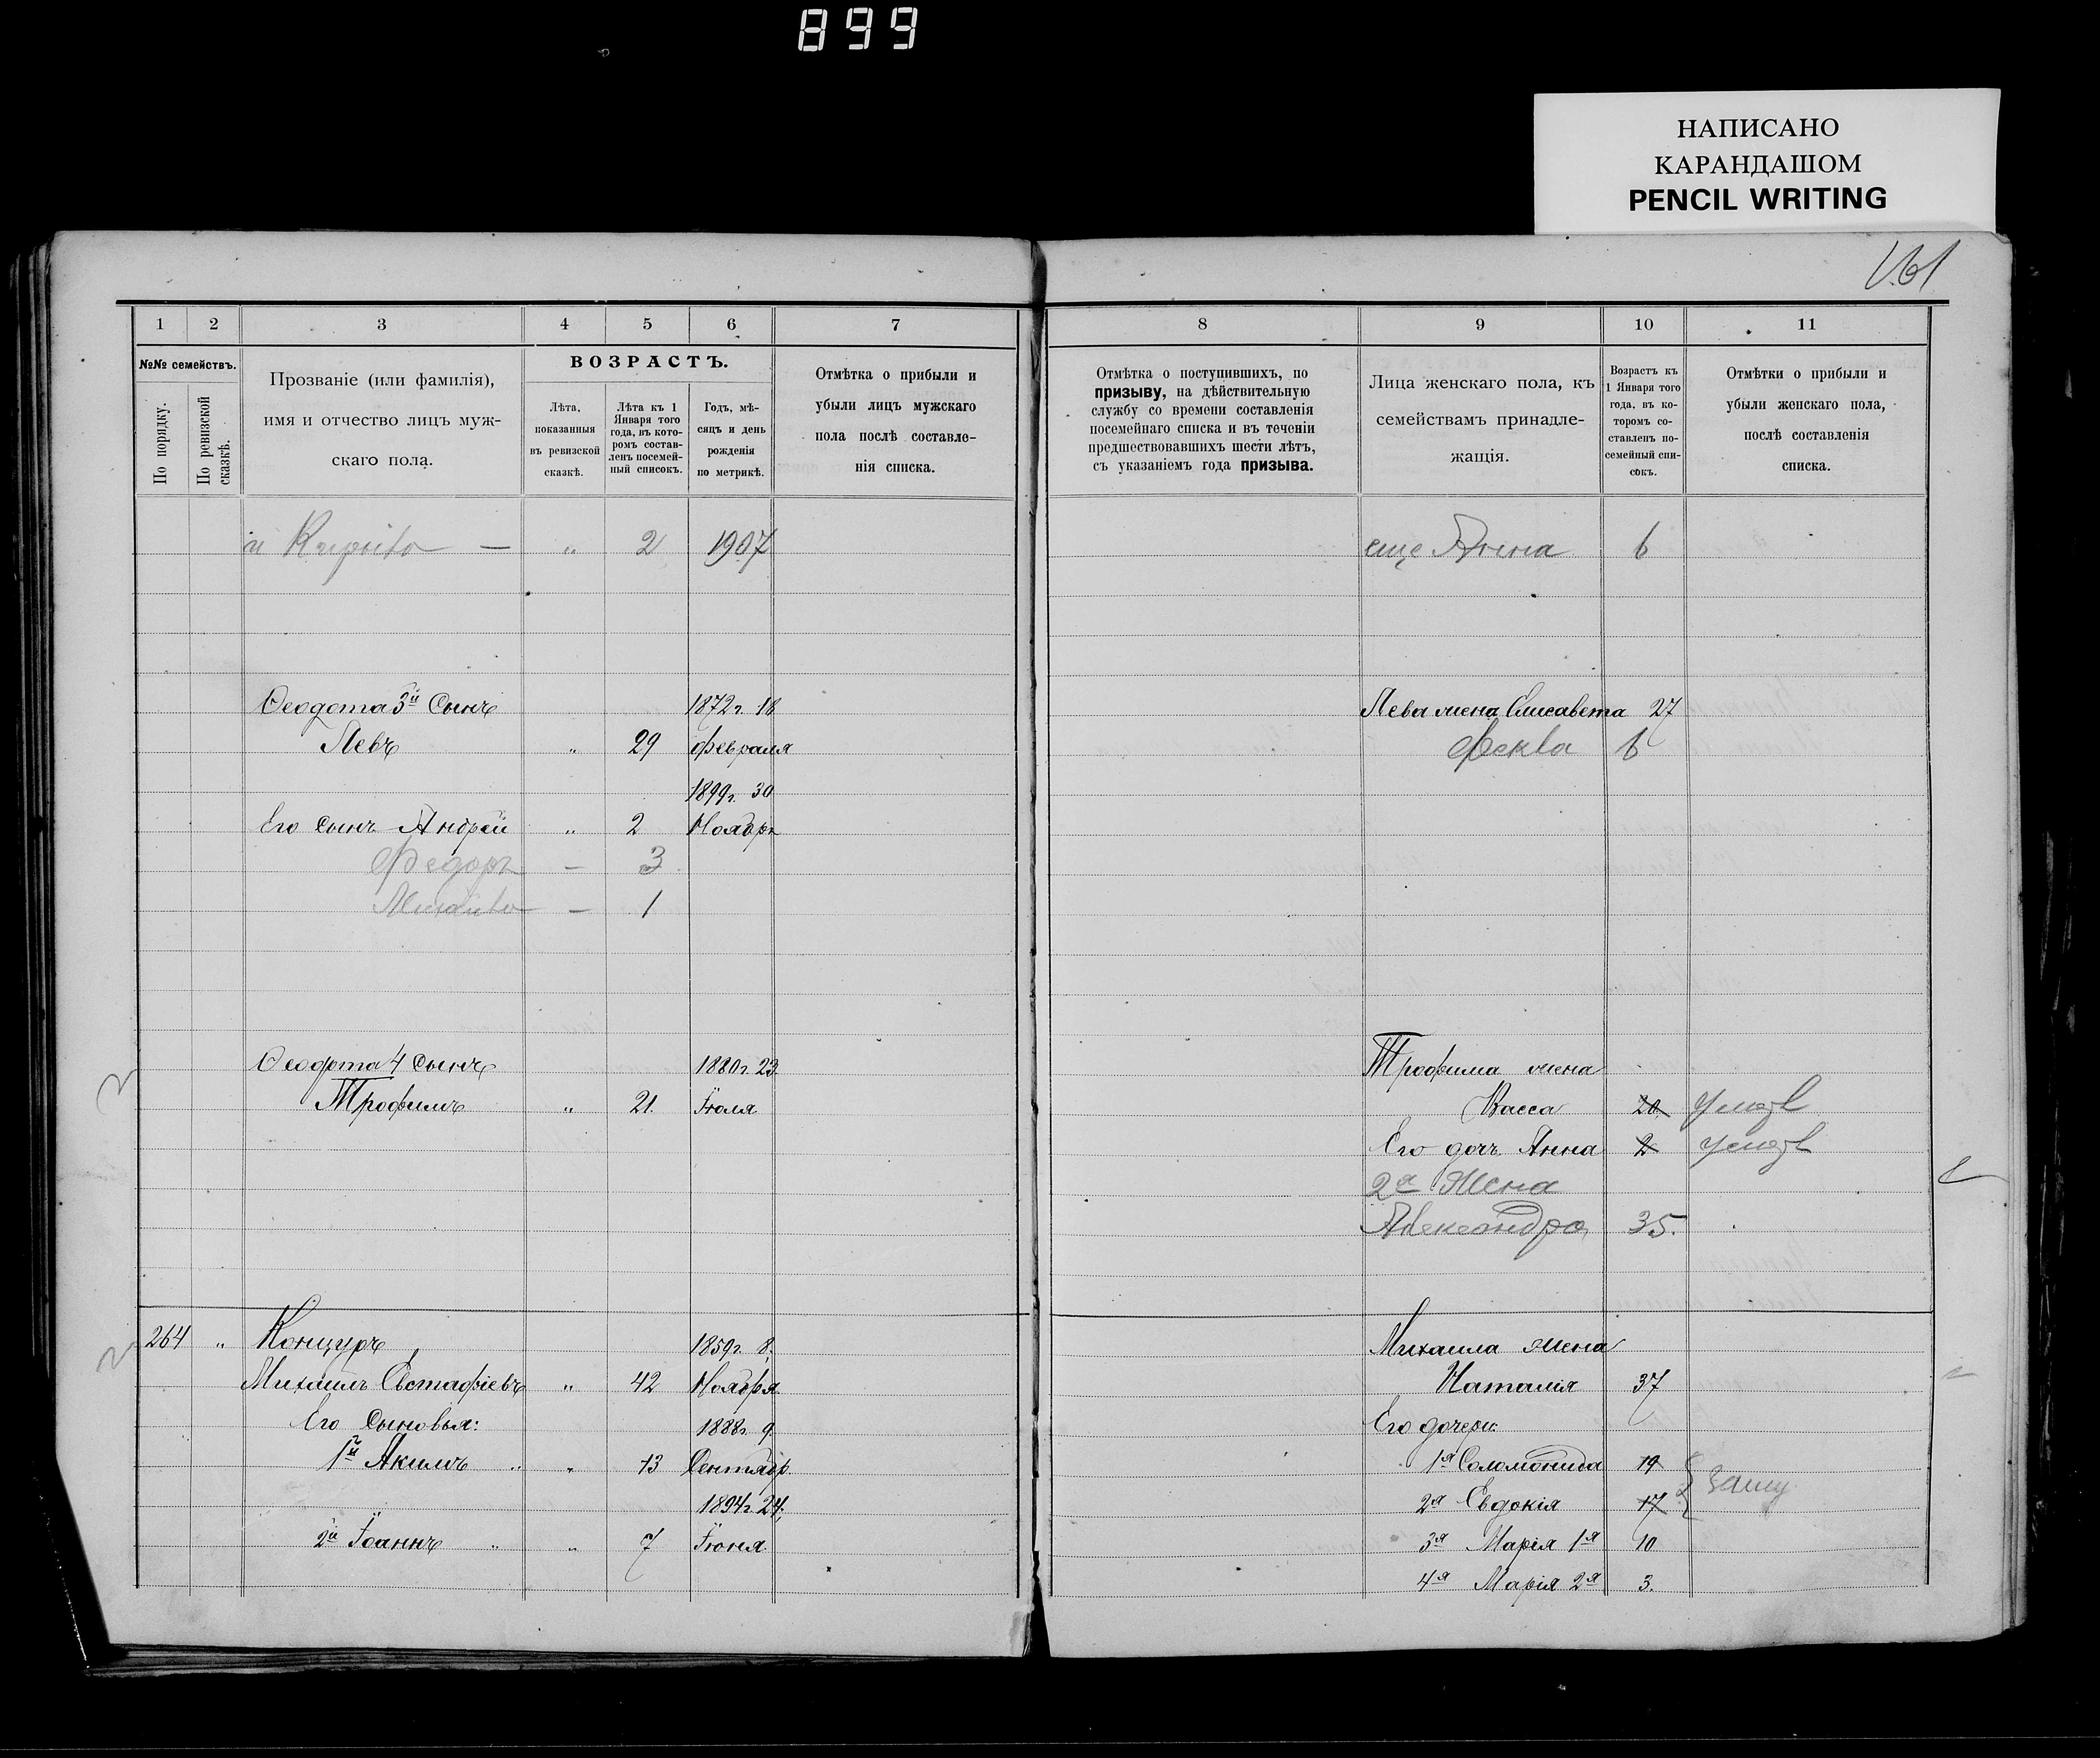 899
НАПИСАНО
КАРАНДАШОМ
PENCIL WRITING
161
1 2 3 4 5 6 7
№№ семействъ.
По порядку.
По ревизской сказкѣ.
Прозваніе (или фамилія),
имя и отчество лицъ муж-
скаго пола.
ВОЗРАСТЪ.
Лѣта,
показанныя
въ ревизской
сказкѣ.
Лѣта къ 1
Января того
года, въ кото-
ромъ состав-
ленъ посемей-
ный списокъ.
Годъ, мѣ-
сяцъ и день
рожденія
по метрикѣ.
Отмѣтка о прибыли и
убыли лицъ мужскаго
пола послѣ составле-
нія списка.
и — „ 2 1907
Ѳеодота 3й Сынъ 1872г. 18
Левъ „ 29 февраля
1899г. 30
Его сынъ Андрей „ 2 Ноября
Федоръ — 3
— 1
Ѳеодота 4 Сынъ 1880г. 23
Трофимъ „ 21. Іюля
264 „ Концуръ 1859г. 8.
Михаилъ Евстафіевъ „ 42 Ноября
Его Сыновья: 1888г. 9
1й Акимъ „ „ 13 Сентябр.
1894г. 24.
2й Іоаннъ „ „ 7 Іюня
8 9 10 11
Отмѣтка о поступившихъ, по
призыву, на дѣйствительную
службу со времени составленія
посемейнаго списка и въ теченіи
предшествовавшихъ шести лѣтъ,
съ указаніемъ года призыва.
Лица женскаго пола, къ
семействамъ принадле-
жащія.
Возрастъ къ
1 Января того
года, въ ко-
торомъ со-
ставленъ по-
семейный спи-
сокъ.
Отмѣтки о прибыли и
убыли женскаго пола,
послѣ составленія
списка.
еще Анна 6
Лева жена Елисавета 27
Фекла 6
Трофима жена
Васса 20
Его дочь Анна 2
2а Жена
Александра 35.
Михаила жена
Наталія 37
Его дочери:
1я Соломонида 19
2я Евдокія 17
замуж
3я Марія 1я 10
4я Марія 2я 3.